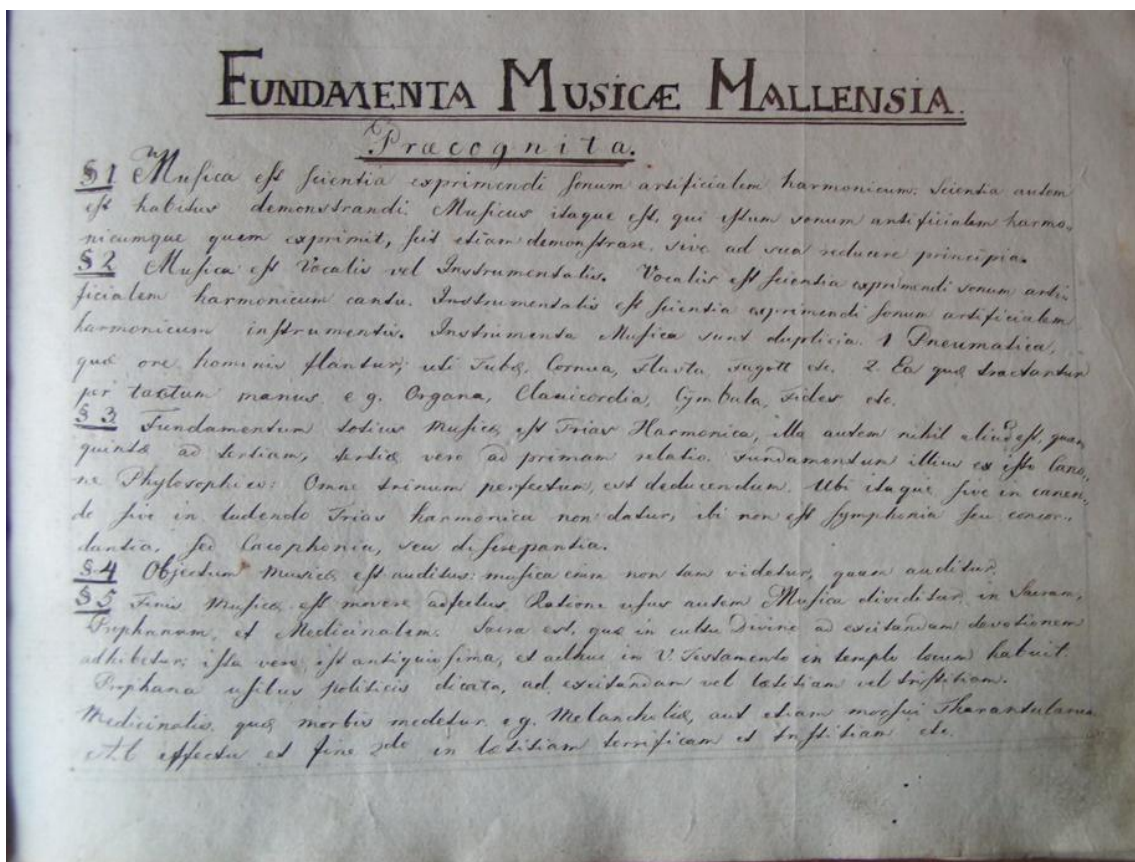 FUNDAMENTA MUSICÆ MALLENSIA.
Præcognita.
§ 1 Musica est scientia exprimendi sonum artificialem harmonicum. Scientia autem
est habitus demonstrandi. Musicus itaque est, qui istum sonum artificialem harmo-
nicumque quem exprimit, scit etiam demonstrare, sive ad sua reducere principia.
§ 2 Musica est Vocalis vel Instrumentalis. Vocalis est scientia exprimendi sonum arti-
ficialem harmonicum cantu. Instrumentalis est scientia exprimendi sonum artificialem
harmonicum instrumentis. Instrumenta Musica sunt duplicia. 1 Pneumatica,
quæ ore hominis flantur; uti Tubæ, Cornua, Flauta Fagott etc. 2. Ea quæ tractantur
per tactum manus. e.g. Organa, Clavicordia, Cymbala, Fides etc.
§ 3 Fundamentum totius Musicæ est Trias Harmonica, illa autem nihil aliud est, quam
quintæ ad tertiam, tertiæ vero ad primam relatio. Fundamentum illius ex isto Cano-
ne Phylosophico: Omne trinum perfectum, est deducendum. Ubi itaque sive in canen-
do sive in ludendo Trias harmonica non datur, ibi non est symphonia seu concor-
dantia, sed Cacophonia, seu discrepantia.
§ 4 Objectum Musicæ est auditus: musica enim non tam videtur, quam auditur.
§ 5 Finis Musicæ est movere adfectus. Ratione usus autem Musica dividitur in Sacram,
Prophanam, et Medicinalem. Sacra est, quæ in cultu Divino ad excitandam devotionem
adhibetur; ista vero est antiquissima, et adhuc in V. Testamento in templo locum habuit.
Prophana usibus politicis dicata, ad excitandam vel lætitiam vel tristitiam.
Medicinalis quæ morbis medetur e.g. Melancholiæ, aut etiam morsui Tharantularum
Ab effectu et fine 2do in lætitiam terrificam et tristitiam etc.